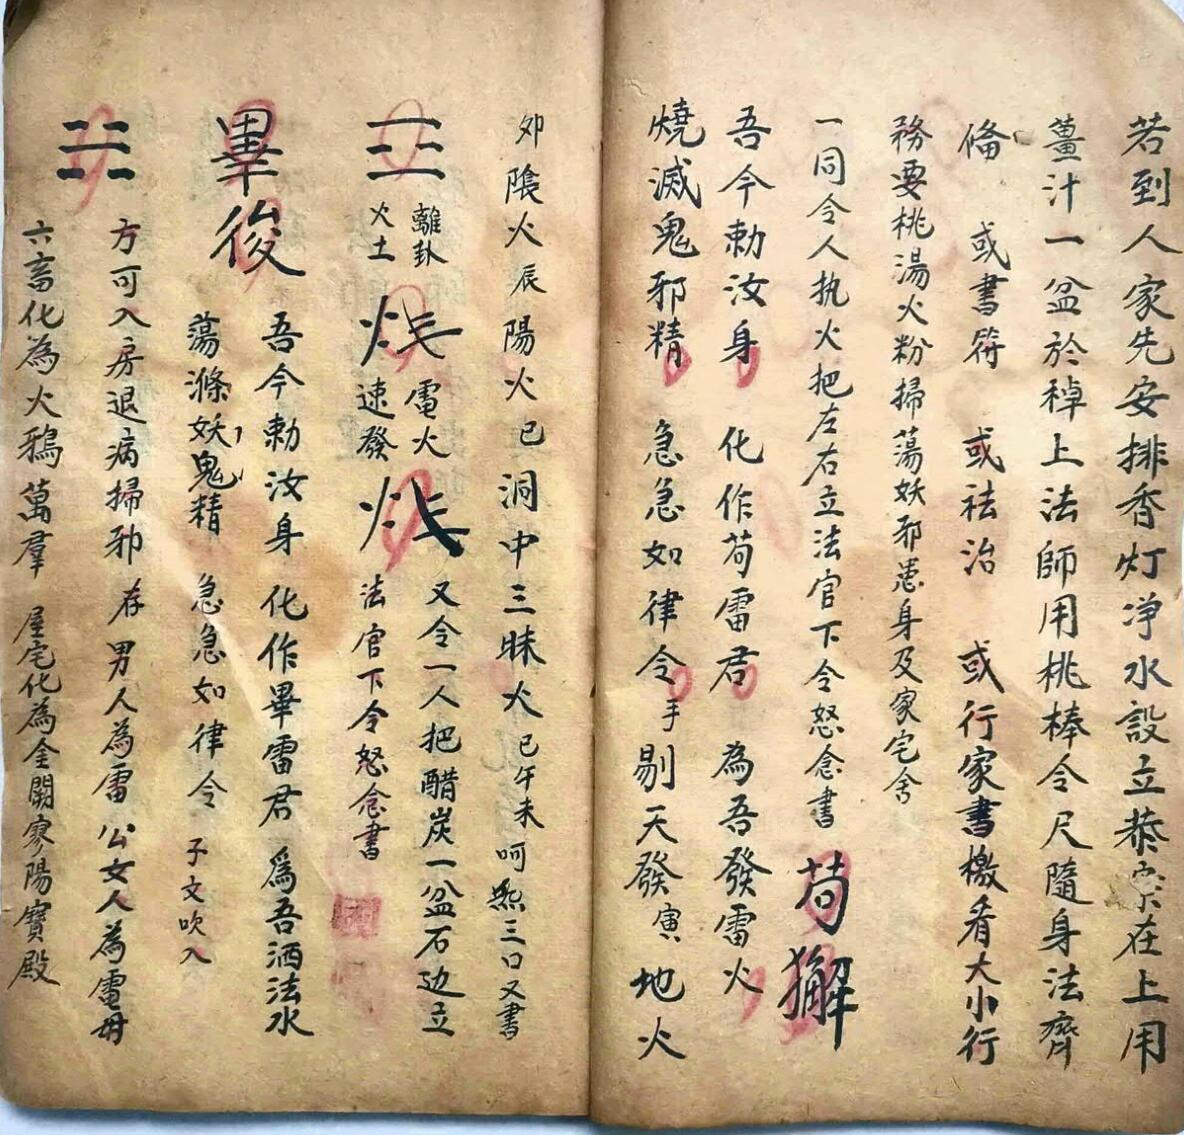 若到人家先安排香灯净水設立恭宗在上用
薑汁一盆於棹上法師用桃棒令尺隨身法齊
俻 或書符 或祛治 或行家書檄看大小行
務要桃湯火粉掃蕩妖邪患身及家宅舍
一同令人执火把左右立法官下令怒念書 苟 獬
吾今勅汝身 化作苟雷君 為吾發雷火
燒滅鬼邪精 急急如律令 手剔天發寅地火
夘陰火辰陽火巳洞中三昧火巳午未呵炁三口又書
離卦 電火 又令一人把醋炭一盆石边立
火土 速發 法官下令怒念書
畢後 吾今勅汝身 化作畢雷君 爲吾洒法水
蕩滌妖鬼精 急急如律令 子文吹入
方可入房退病掃邪 存男人為雷公女人為電母
六畜化為火鴉萬羣 屋宅化為金闕寥陽寶殿